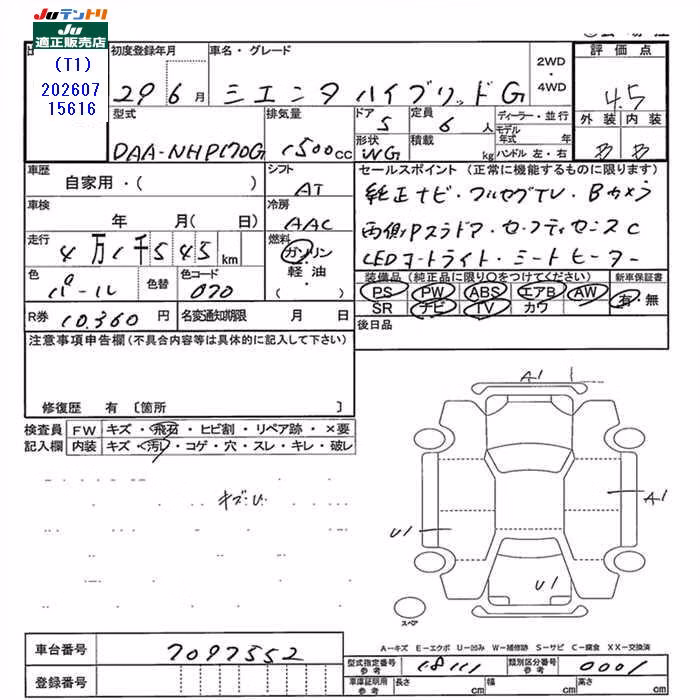 Juテントリ
Ju
適正販売店
(T1)
202607
15616
初度登録年月
車名・グレード
2WD
・
4WD
評価点
29 6月
シエンタ ハイブリッドG
4.5
型式
排気量
ドア
定員
ディーラー・並行
外装 内装
DAA-NHP170G
1500cc
5
6人
モデル年式 年
B B
形状
積載
WG
kg
ハンドル 左・右
車歴
シフト
セールスポイント(正常に機能するものに限ります)
自家用・( )
AT
純正ナビ・フルセグTV・Bカメラ
車検
冷房
年 月( 日)
AAC
両側Pスラドア・セーフティセンスC
走行
燃料
4万1千545km
ガソリン
LEDオートライト・シートヒーター
軽油
色
色替
色コード
装備品(純正品に限り○をつけてください)
新車保証書
パール
070
PS PW ABS エアB AW
有・無
SR ナビ TV カワ
R券 10,360円
名変通知期限 月 日
後日品
注意事項申告欄(不具合内容等は具体的に記入して下さい)
修復歴 有〔箇所 〕
A1
検査員
FW
キズ・飛石・ヒビ割・リペア跡・×要
記入欄
内装
キズ・汚れ・コゲ・穴・スレ・キレ・破レ
キズ・U
A1
U1
U1
スペア
A-キズ E-エクボ U-凹み W-補修跡 S-サビ C-腐食 XX-交換済
車台番号
7097552
型式指定番号
参考
18111
類別区分番号
参考
0001
登録番号
車庫証明用
参考
長さ cm
幅 cm
高さ cm